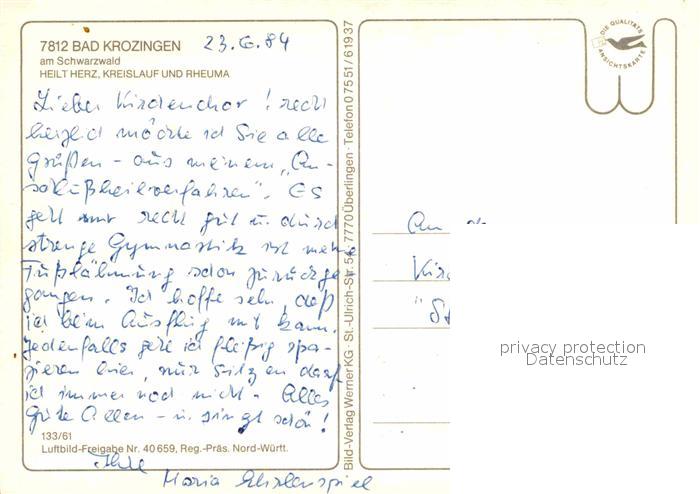 7812 BAD KROZINGEN 23.6.84
am Schwarzwald
HEILT HERZ, KREISLAUF UND RHEUMA
Lieber Kirchenchor! recht
herzlich möchte ich Sie alle
grüßen - aus meinem "An-
schlußheilverfahren". Es
geht mir recht gut u. durch
strenge Gymnastik ist meine
Fußlähmung schon zurückge-
gangen. Ich hoffe sehr, daß
ich beim Ausflug mit kann.
Jedenfalls geh ich fleißig spa-
zieren hier, nur Sitzen darf
ich immer noch nicht. Alles
Gute Allen - u. singt schön!
133/61
Luftbild-Freigabe Nr. 40659, Reg.-Präs. Nord-Württ.
Ihre
Maria
Bild-Verlag Werner KG · St.-Ulrich-Str. 54, 7770 Überlingen · Telefon 07551/61937
DIE QUALITÄTS
ANSICHTSKARTE
An
privacy protection
Datenschutz